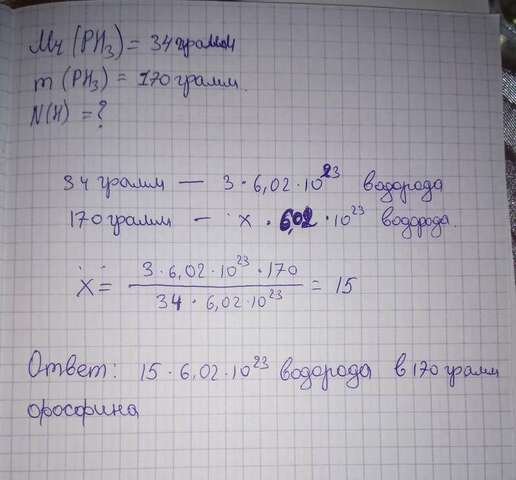 Mr (PH₃) = 34 грамм
m (PH₃) = 170 грамм.
N(H) = ?
34 грамм — 3 · 6,02 · 10²³ водорода
170 грамм — x · 6,02 · 10²³ водорода.
x = (3 · 6,02 · 10²³ · 170) / (34 · 6,02 · 10²³) = 15
Ответ: 15 · 6,02 · 10²³ водорода в 170 грамм
фосфина